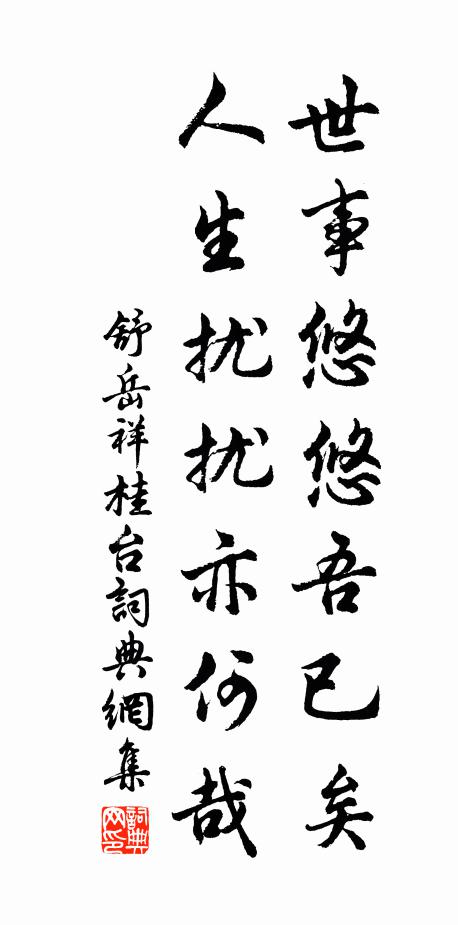 世事悠悠吾已矣
人生扰扰亦何哉
舒岳祥桂台詞典網集
詞典网印